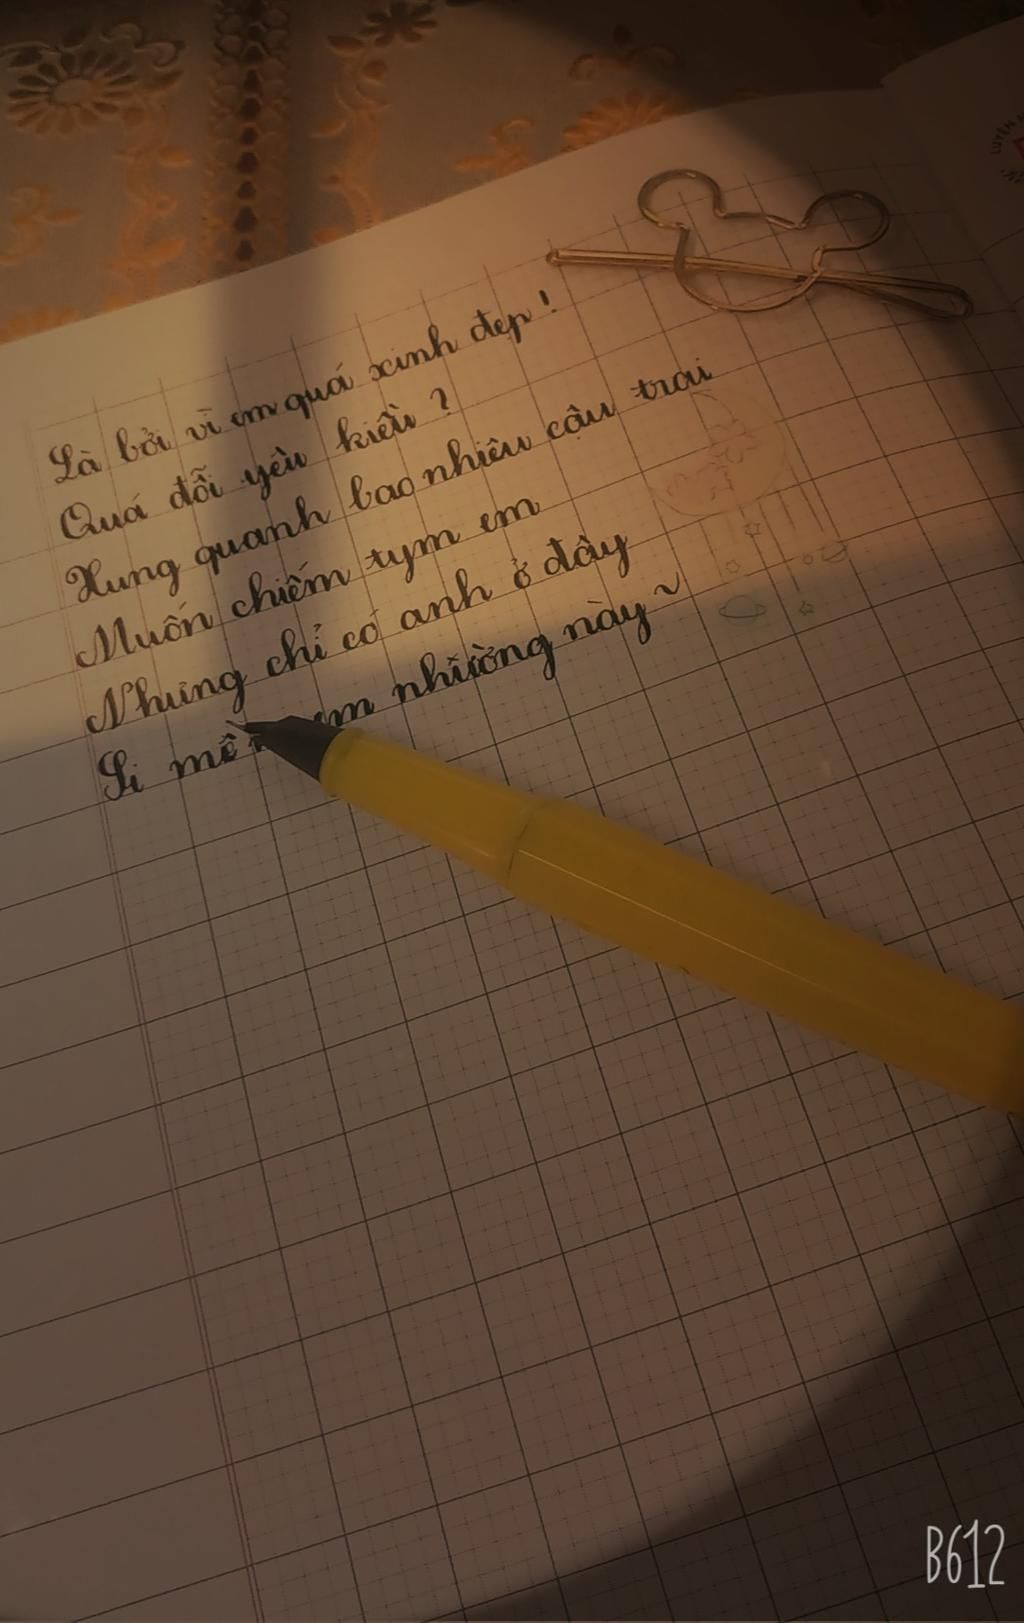 Là bởi vì em quá xinh đẹp!
Quá đỗi yêu kiều?
Xung quanh bao nhiêu cậu trai
Muốn chiếm tym em
Nhưng chỉ có anh ở đây
Si mê em nhường này~
LUYỆN
B612